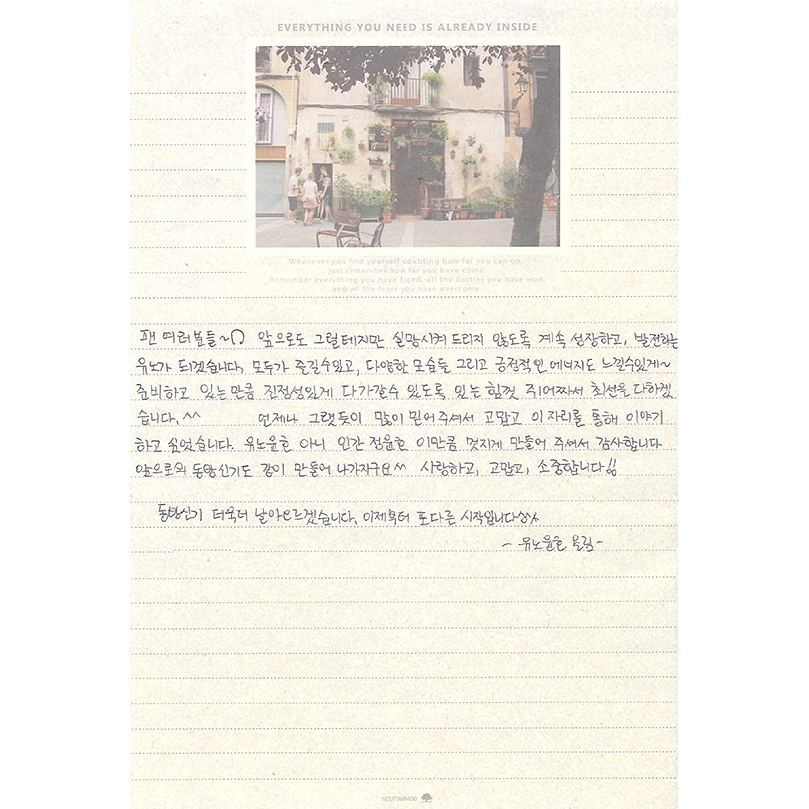 EVERYTHING YOU NEED IS ALREADY INSIDE
Whenever you find yourself doubting how far you can go,
just remember how far you have come.
Remember everything you have faced, all the battles you have won,
and all the fears you have overcome.
팬 여러분들~♡ 앞으로도 그럴테지만 실망시켜 드리지 않도록 계속 성장하고, 발전하는
유노가 되겠습니다, 모두가 즐길수있고, 다양한 모습들 그리고 긍정적인 에너지도 느낄수있게~
준비하고 있는만큼 진정성있게 다가갈수 있도록 있는 힘껏 쥐어짜서 최선을 다하겠
습니다.^^ 언제나 그랬듯이 많이 믿어주셔서 고맙고 이자리를 통해 이야기
하고 싶었습니다. 유노윤호 아니 인간 정윤호 이만큼 멋지게 만들어 주셔서 감사합니다
앞으로의 동방신기도 같이 만들어 나가자구요^^ 사랑하고, 고맙고, 소중합니다!!
동방신기 더욱더 날아오르겠습니다, 이제부터 또다른 시작입니다^^
- 유노윤호 올림 -